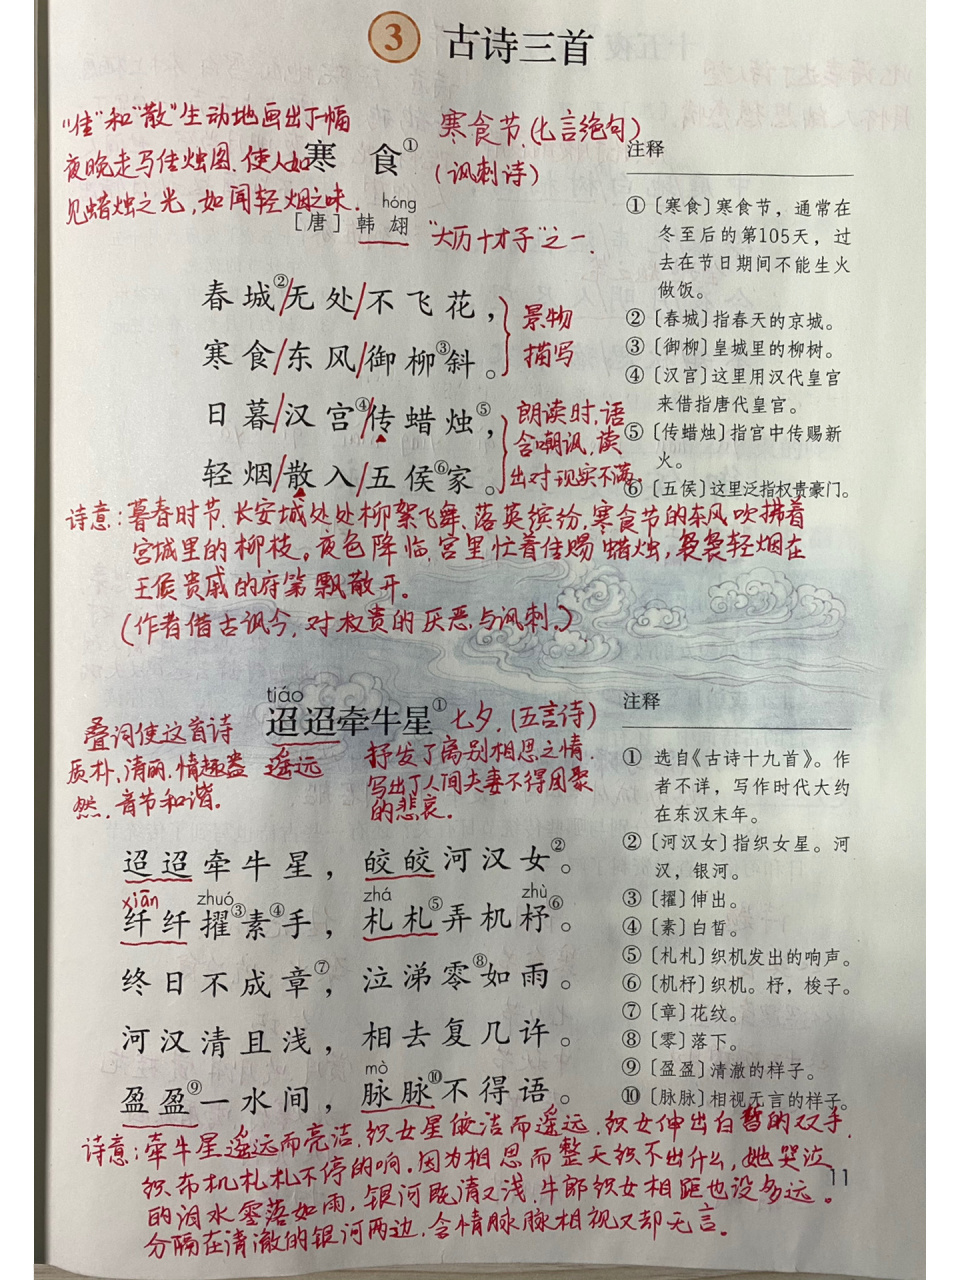 3 古诗三首
“佳”和“散”生动地画出了一幅
夜晚走马佳烛图.使人如
见蜡烛之光,如闻轻烟之味.
寒食①
寒食节.(七言绝句)
(讽刺诗)
hóng
[唐] 韩翃
“大历十才子”之一.
春城②/无处/不飞花，
寒食/东风/御柳③斜。
景物
描写
日暮/汉宫④/传蜡烛⑤，
轻烟/散入/五侯⑥家。
朗读时,语
含嘲讽,读
出对现实不满.
注释
①〔寒食〕寒食节，通常在
冬至后的第105天，过
去在节日期间不能生火
做饭。
②〔春城〕指春天的京城。
③〔御柳〕皇城里的柳树。
④〔汉宫〕这里用汉代皇宫
来借指唐代皇宫。
⑤〔传蜡烛〕指宫中传赐新
火。
⑥〔五侯〕这里泛指权贵豪门。
诗意:暮春时节.长安城处处柳絮飞舞.落英缤纷,寒食节的东风吹拂着
宫城里的柳枝。夜色降临,宫里忙着佳赐蜡烛,袅袅轻烟在
王侯贵戚的府第飘散开.
(作者借古讽今,对权贵的厌恶与讽刺.)
tiáo
迢迢牵牛星①
遥远
七夕.(五言诗)
抒发了离别相思之情.
写出了人间夫妻不得团聚
的悲哀.
叠词使这首诗
质朴,清丽.情趣盎
然.音节和谐.
迢迢牵牛星，皎皎河汉女②。
xiān zhuó zhá zhù
纤纤擢③素④手，札札⑤弄机杼⑥。
终日不成章⑦，泣涕零⑧如雨。
河汉清且浅，相去复几许。
mò
盈盈⑨一水间，脉脉⑩不得语。
注释
① 选自《古诗十九首》。作
者不详，写作时代大约
在东汉末年。
②〔河汉女〕指织女星。河
汉，银河。
③〔擢〕伸出。
④〔素〕白皙。
⑤〔札札〕织机发出的响声。
⑥〔机杼〕织机。杼，梭子。
⑦〔章〕花纹。
⑧〔零〕落下。
⑨〔盈盈〕清澈的样子。
⑩〔脉脉〕相视无言的样子。
诗意:牵牛星遥远而亮洁.织女星皎洁而遥远.织女伸出白皙的双手.
织布机札札不停的响.因为相思而整天织不出什么,她哭泣
的泪水零落如雨,银河既清又浅.牛郎织女相距也没多远。
分隔在清澈的银河两边,含情脉脉相视又却无言.
11